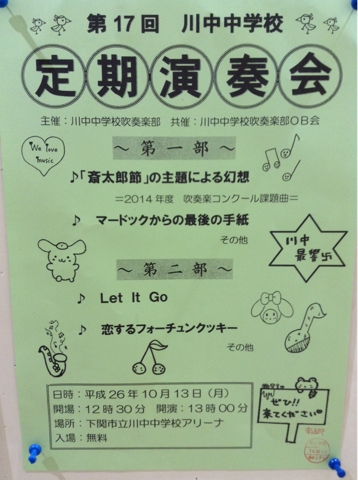 第17回 川中中学校
定期演奏会
主催：川中中学校吹奏楽部 共催：川中中学校吹奏楽部OB会
We love music
～ 第一部 ～
♪「斎太郎節」の主題による幻想
＝2014年度 吹奏楽コンクール課題曲＝
♪ マードックからの最後の手紙
その他
川中
最響
～ 第二部 ～
♪ Let It Go
♪ 恋するフォーチュンクッキー
その他
日時：平成26年10月13日（月）
開場：12時30分 開演：13時00分
場所：下関市立川中中学校アリーナ
入場：無料
ぜひ!!
来てください